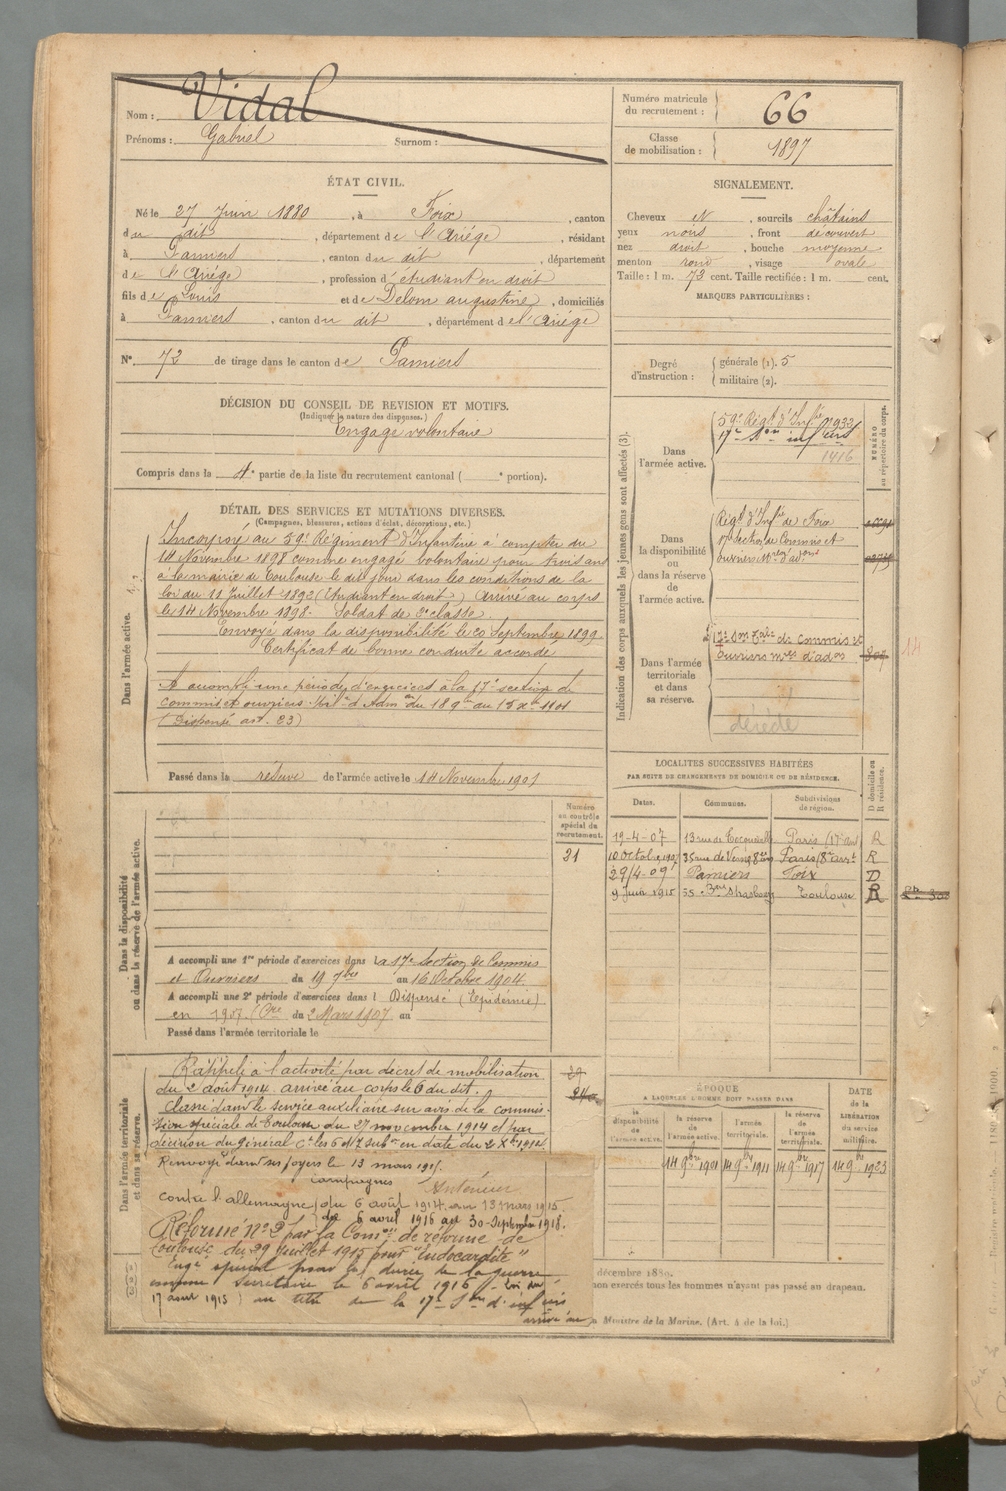 Nom : Vidal
Prénoms : Gabriel Surnom :
Numéro matricule du recrutement : 66
Classe de mobilisation : 1897
ÉTAT CIVIL.
Né le 27 Juin 1880, à Foix, canton
du dit, département de l'Ariége, résidant
à Pamiers, canton du dit, département
de l'Ariége, profession d'étudiant en droit
fils de Louis et de Delom augustine, domiciliés
à Pamiers, canton du dit, département de l'Ariége
N° 72 de tirage dans le canton de Pamiers
SIGNALEMENT.
Cheveux et, sourcils châtains
yeux noirs, front découvert
nez droit, bouche moyenne
menton rond, visage ovale
Taille : 1 m. 73 cent. Taille rectifiée : 1 m. cent.
MARQUES PARTICULIÈRES :
Degré d'instruction : générale (1). 5
militaire (2).
DÉCISION DU CONSEIL DE REVISION ET MOTIFS.
(Indiquer la nature des dispenses.)
Engagé volontaire
Compris dans la 4e partie de la liste du recrutement cantonal ( e portion).
DÉTAIL DES SERVICES ET MUTATIONS DIVERSES.
(Campagnes, blessures, actions d'éclat, décorations, etc.)
Dans l'armée active.
Incorporé au 59e Régiment d'Infanterie à compter du
14 Novembre 1898 comme engagé volontaire pour trois ans
à la mairie de Toulouse le dit jour dans les conditions de la
loi du 11 Juillet 1892 (Etudiant en droit) Arrivé au corps
le 14 Novembre 1898. Soldat de 2e classe.
Envoyé dans la disponibilité le 20 Septembre 1899
Certificat de bonne conduite accordé
A accompli une période d'exercices à la 17e section de
commis et ouvriers d'Adm on du 18 9bre au 15 Xbre 1901
(Dispensé art. 23)
Passé dans la réserve de l'armée active le 14 Novembre 1901
Indication des corps auxquels les jeunes gens sont affectés (3).
NUMÉRO au répertoire du corps.
Dans l'armée active.
59e Régt d'Infie 7932
17e Son inf ers
1416
Dans la disponibilité ou dans la réserve de l'armée active.
Régt d'Infie de Foix
17e section de Commis et
ouvriers d'adon
Dans l'armée territoriale et dans sa réserve.
17e Son Tale de commis et
ouvriers mres d'adon
14
décédé
LOCALITÉS SUCCESSIVES HABITÉES
PAR SUITE DE CHANGEMENTS DE DOMICILE OU DE RÉSIDENCE.
Dates. Communes. Subdivisions de région. D domicile ou R résidence.
19-4-07 13 rue de Paris (17e arrt R
10 Octobre 1907 35 rue de Paris (8e arrt R
29/4-09 Pamiers Foix D
9 Juin 1915 55 Strasbourg Toulouse R
Dans la disponibilité ou dans la réserve de l'armée active.
Numéro au contrôle spécial du recrutement.
21
A accompli une 1re période d'exercices dans la 17e Section de Commis
et Ouvriers du 19 7bre au 16 Octobre 1904.
A accompli une 2e période d'exercices dans l Dispensé (Epidémie)
en 1907. du 2 Mars 1907 au
Passé dans l'armée territoriale le
Dans l'armée territoriale et dans sa réserve.
Rappelé à l'activité par décret de mobilisation
du 2 août 1914. arrivé au corps le 6 du dit.
Classé dans le service auxiliaire sur avis de la commis-
sion spéciale de Toulouse du 27 novembre 1914 et par
décision du général Ct les 6 et 7 subon en date du 2 Xbre 1914
Renvoyé dans ses foyers le 13 mars 1915.
Campagnes Intérieur
contre l'allemagne du 6 août 1914 au 13 mars 1915.
du 6 avril 1916 au 30 Septembre 1918.
Réformé n° 2 par la Comon de réforme de
Toulouse du 29 Juillet 1915 pour "Endocardite"
Engé spécial pour la durée de la guerre
comme Secrétaire le 6 avril 1916 (Loi du
17 aout 1915) au titre de la 17e Son d' inf ers
arrivé au
ÉPOQUE
À LAQUELLE L'HOMME DOIT PASSER DANS
la disponibilité de l'armée active. la réserve de l'armée active. l'armée territoriale. la réserve de l'armée territoriale. DATE de la LIBÉRATION du service militaire.
14 9bre 1901 14 9bre 1911 14 9bre 1917 14 9bre 1923
décembre 1889.
non exercés tous les hommes n'ayant pas passé au drapeau.
Ministre de la Marine. (Art. 4 de la loi.)